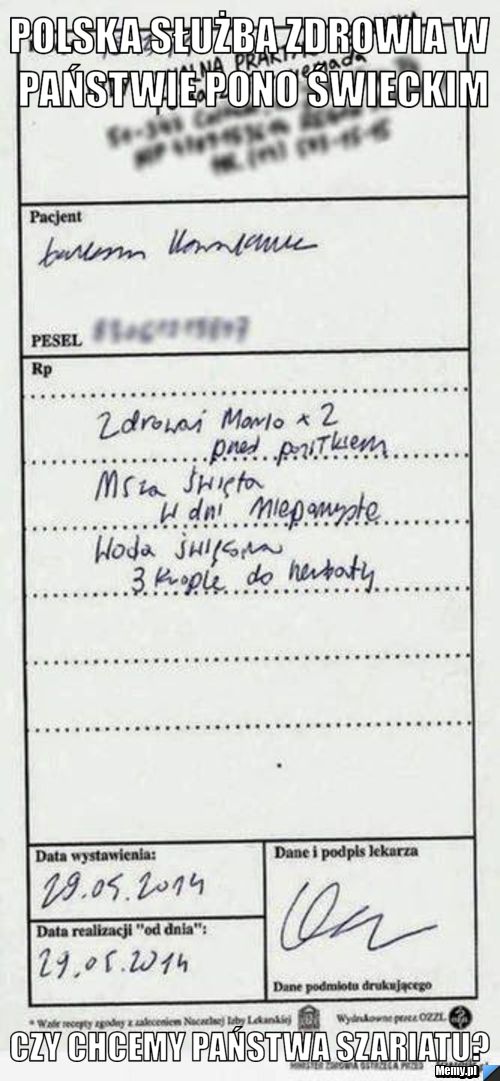 POLSKA SŁUŻBA ZDROWIA W
PAŃSTWIE PONO ŚWIECKIM
Pacjent
PESEL
Rp
Zdrowaś Mario x 2
przed posiłkiem
Msza Święta
w dni nieparzyste
Woda święcona
3 krople do herbaty
Data wystawienia:
29.05.2014
Dane i podpis lekarza
Data realizacji "od dnia":
29.05.2014
Dane podmiotu drukującego
* Wzór recepty zgodny z zaleceniem Naczelnej Izby Lekarskiej
Wydrukowane przez OZZL
CZY CHCEMY PAŃSTWA SZARIATU?
Memy.pl